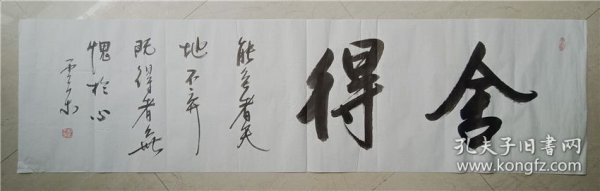 舍得
能舍者天
地不弃
既得者無
愧於心
孔夫子旧书网
www.kongfz.com